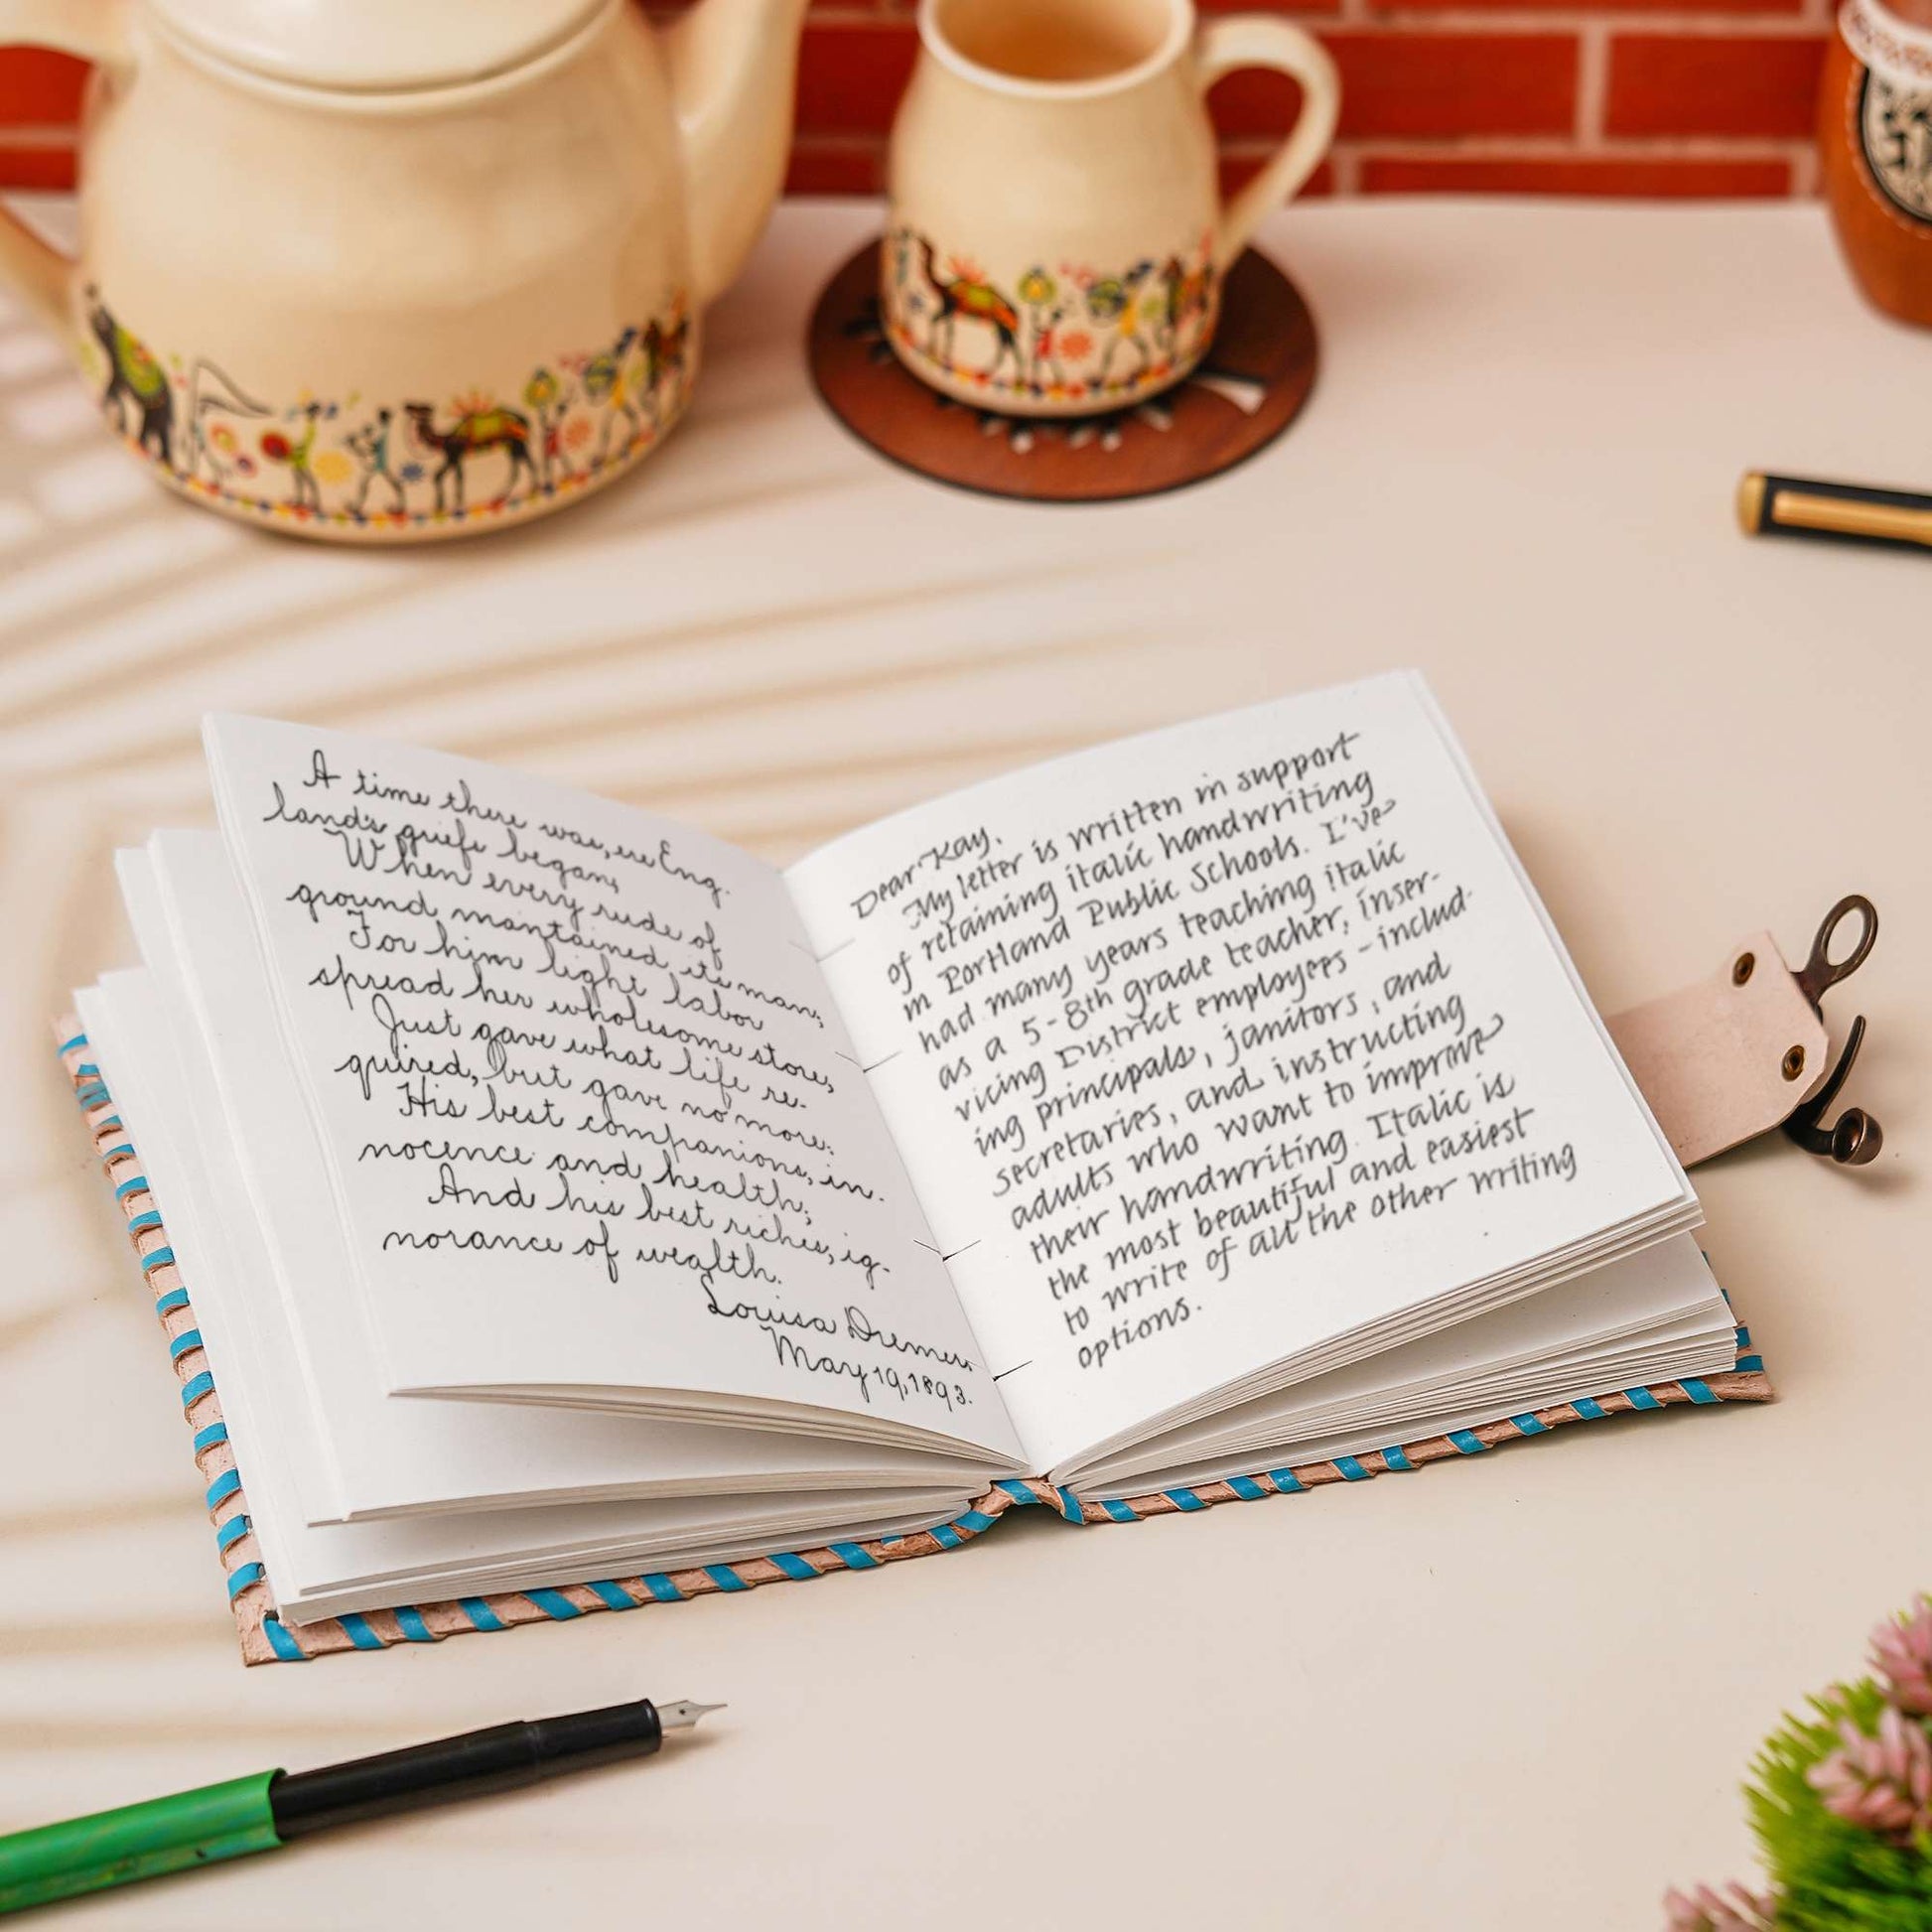 A time there was, ere Eng.
land's griefs began,
When every rude of
ground mantained its man;
For him light labor
spread her wholesome store,
Just gave what life re-
quired, but gave no more:
His best companions, in-
nocence and health;
And his best riches, ig-
norance of wealth.
Louisa
May 19, 1893.
Dear Kay,
My letter is written in support
of retaining italic handwriting
in Portland Public Schools. I've
had many years teaching italic
as a 5-8th grade teacher, inser-
vicing District employees - includ-
ing principals, janitors, and
secretaries, and instructing
adults who want to improve
their handwriting. Italic is
the most beautiful and easiest
to write of all the other writing
options.